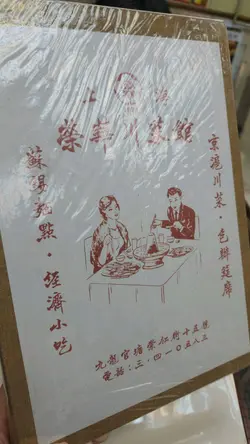 上 海
榮華川菜館
京滬川菜·包辦筵席
蘇錫麵點·經濟小吃
九龍官塘仁街十五號
電話：三·四一〇五八三